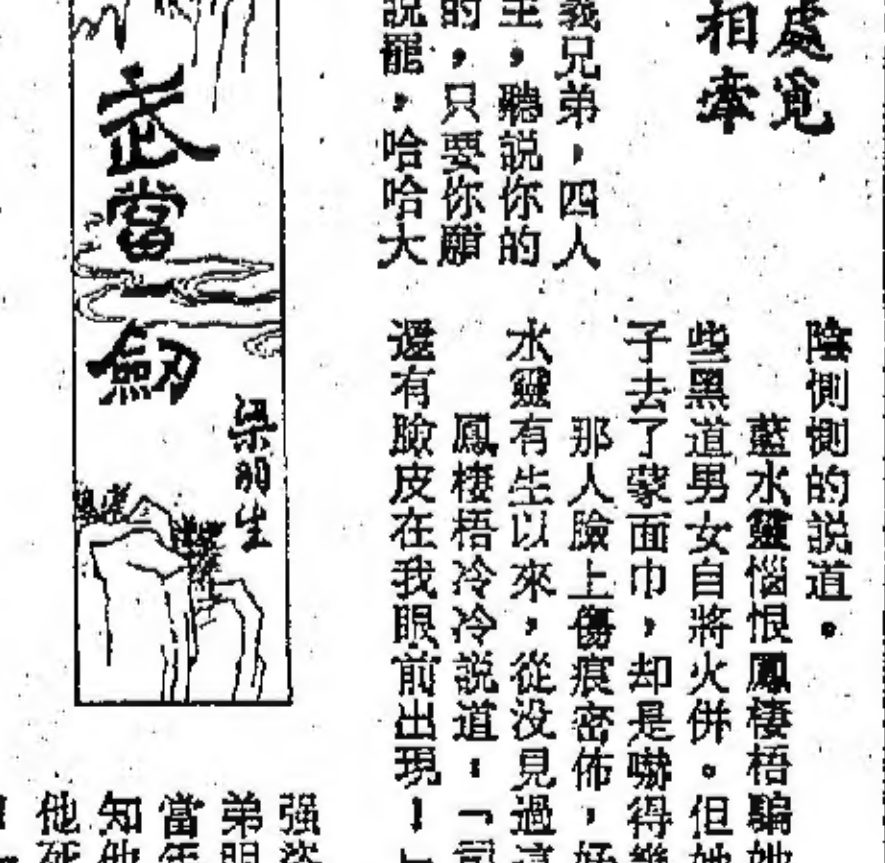 處覓
相牽
義兄弟，四人
主，聽説你的
的，只要你願
説罷，哈哈大
陰惻惻的説道。
藍水靈惱恨鳳棲梧騙她
些黑道男女自將火併。但她
子去了蒙面巾，却是嚇得幾
那人臉上傷痕密佈，好
水靈有生以來，從没見過這
鳳棲梧冷冷説道：「司
還有臉皮在我眼前出現！」
武當一劍
梁羽生
强盗
弟明
當年
知他
他死